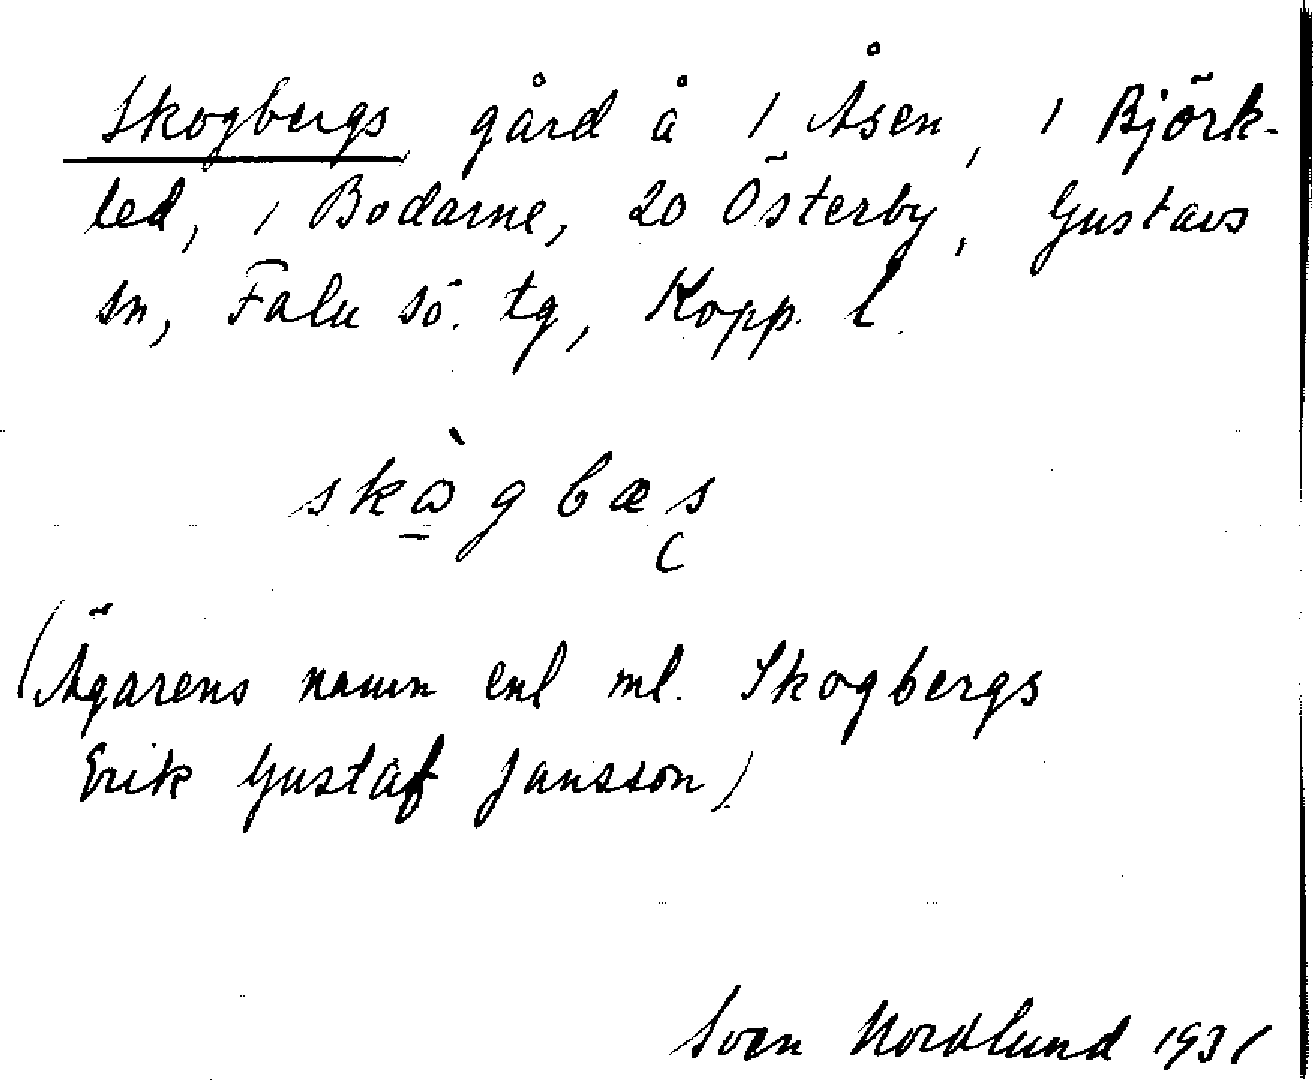 Skogbergs, gård å 1 Åsen, 1 Björk-
led, 1 Bodarne, 20 Österby, Gustavs
sn, Falu sö. tg, Kopp. l.
skɷ̠̀gbæs̨
(Ägarens namn enl ml. Skogbergs
Erik Gustaf Jansson)
Sven Nordlund 1931